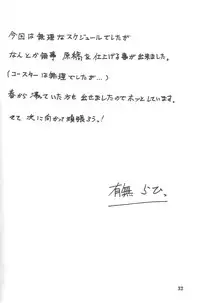 今回は無理なスケジュールでしたが
なんとか無事 原稿を仕上げる事が出来ました。
(コースターは無理でしたが…)
春から凍っていた方も 出せましたのでホッとしています。
さて 次に向かって頑張ろう!
有無 らひ。
32